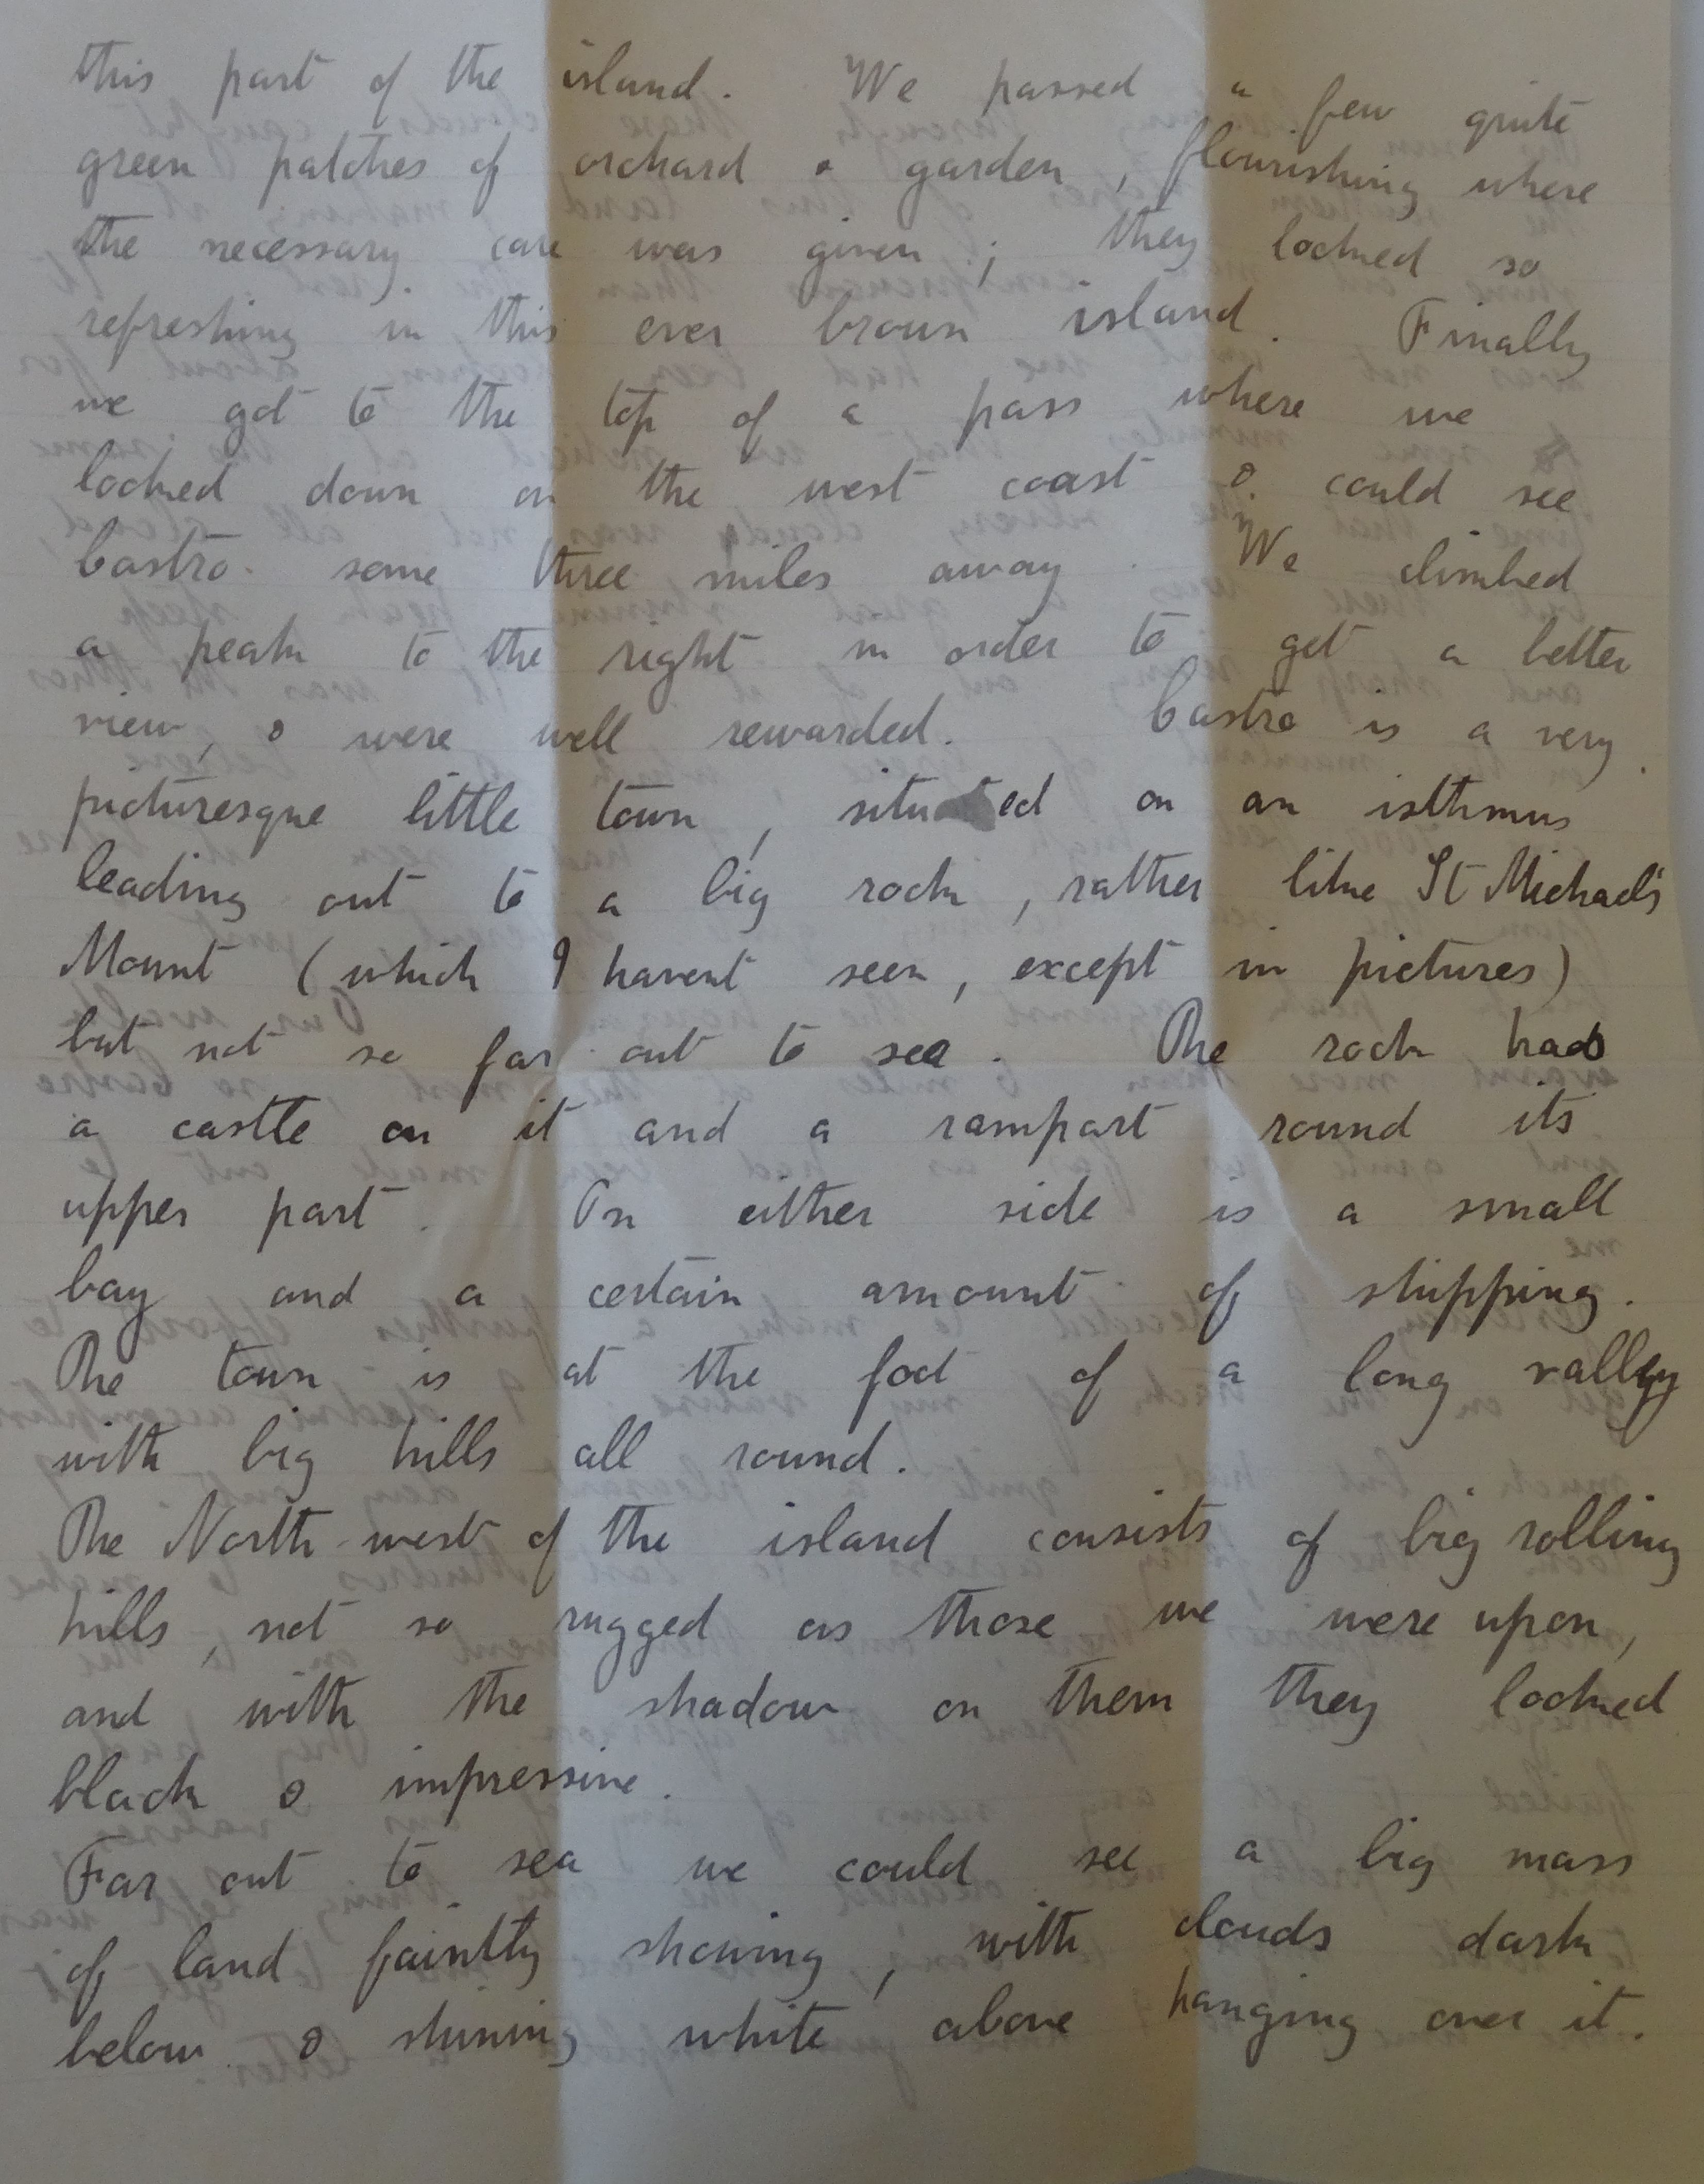 this part of the island. We passed a few quite
green patches of orchard & garden, flourishing where
the necessary care was given; they looked so
refreshing in this ever brown island. Finally
we got to the top of a pass where we
looked down on the west coast & could see
Castro some three miles away. We climbed
a peak to the right in order to get a better
view, & were well rewarded. Castro is a very
picturesque little town, situated on an isthmus
leading out to a big rock, rather like St Michael's
Mount (which I havent seen, except in pictures)
but not so far out to sea. The rock has
a castle on it and a rampart round its
upper part. On either side is a small
bay and a certain amount of shipping.
The town is at the foot of a long valley
with big hills all round.
The North west of the island consists of big rolling
hills, not so rugged as those we were upon,
and with the shadow on them they looked
black & impressive.
Far out to sea we could see a big mass
of land faintly showing, with clouds dark
below & shining white above hanging over it.